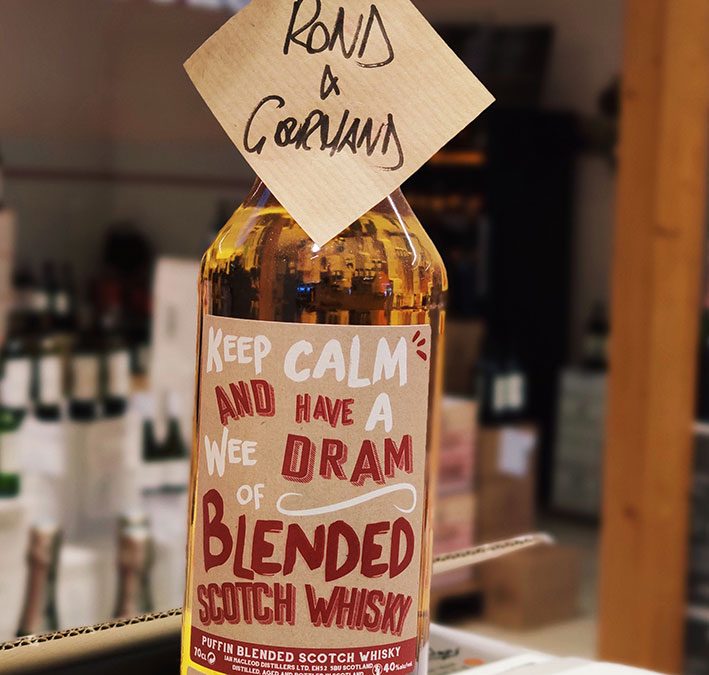 ROND
&
GOURMAND
KEEP CALM
AND HAVE A
WEE DRAM
OF
BLENDED
SCOTCH WHISKY
PUFFIN BLENDED SCOTCH WHISKY
70cl IAN MACLEOD DISTILLERS LTD, EH52 5BU SCOTLAND 40%alc/vol.
DISTILLED, AGED AND BOTTLED IN SCOTLAND